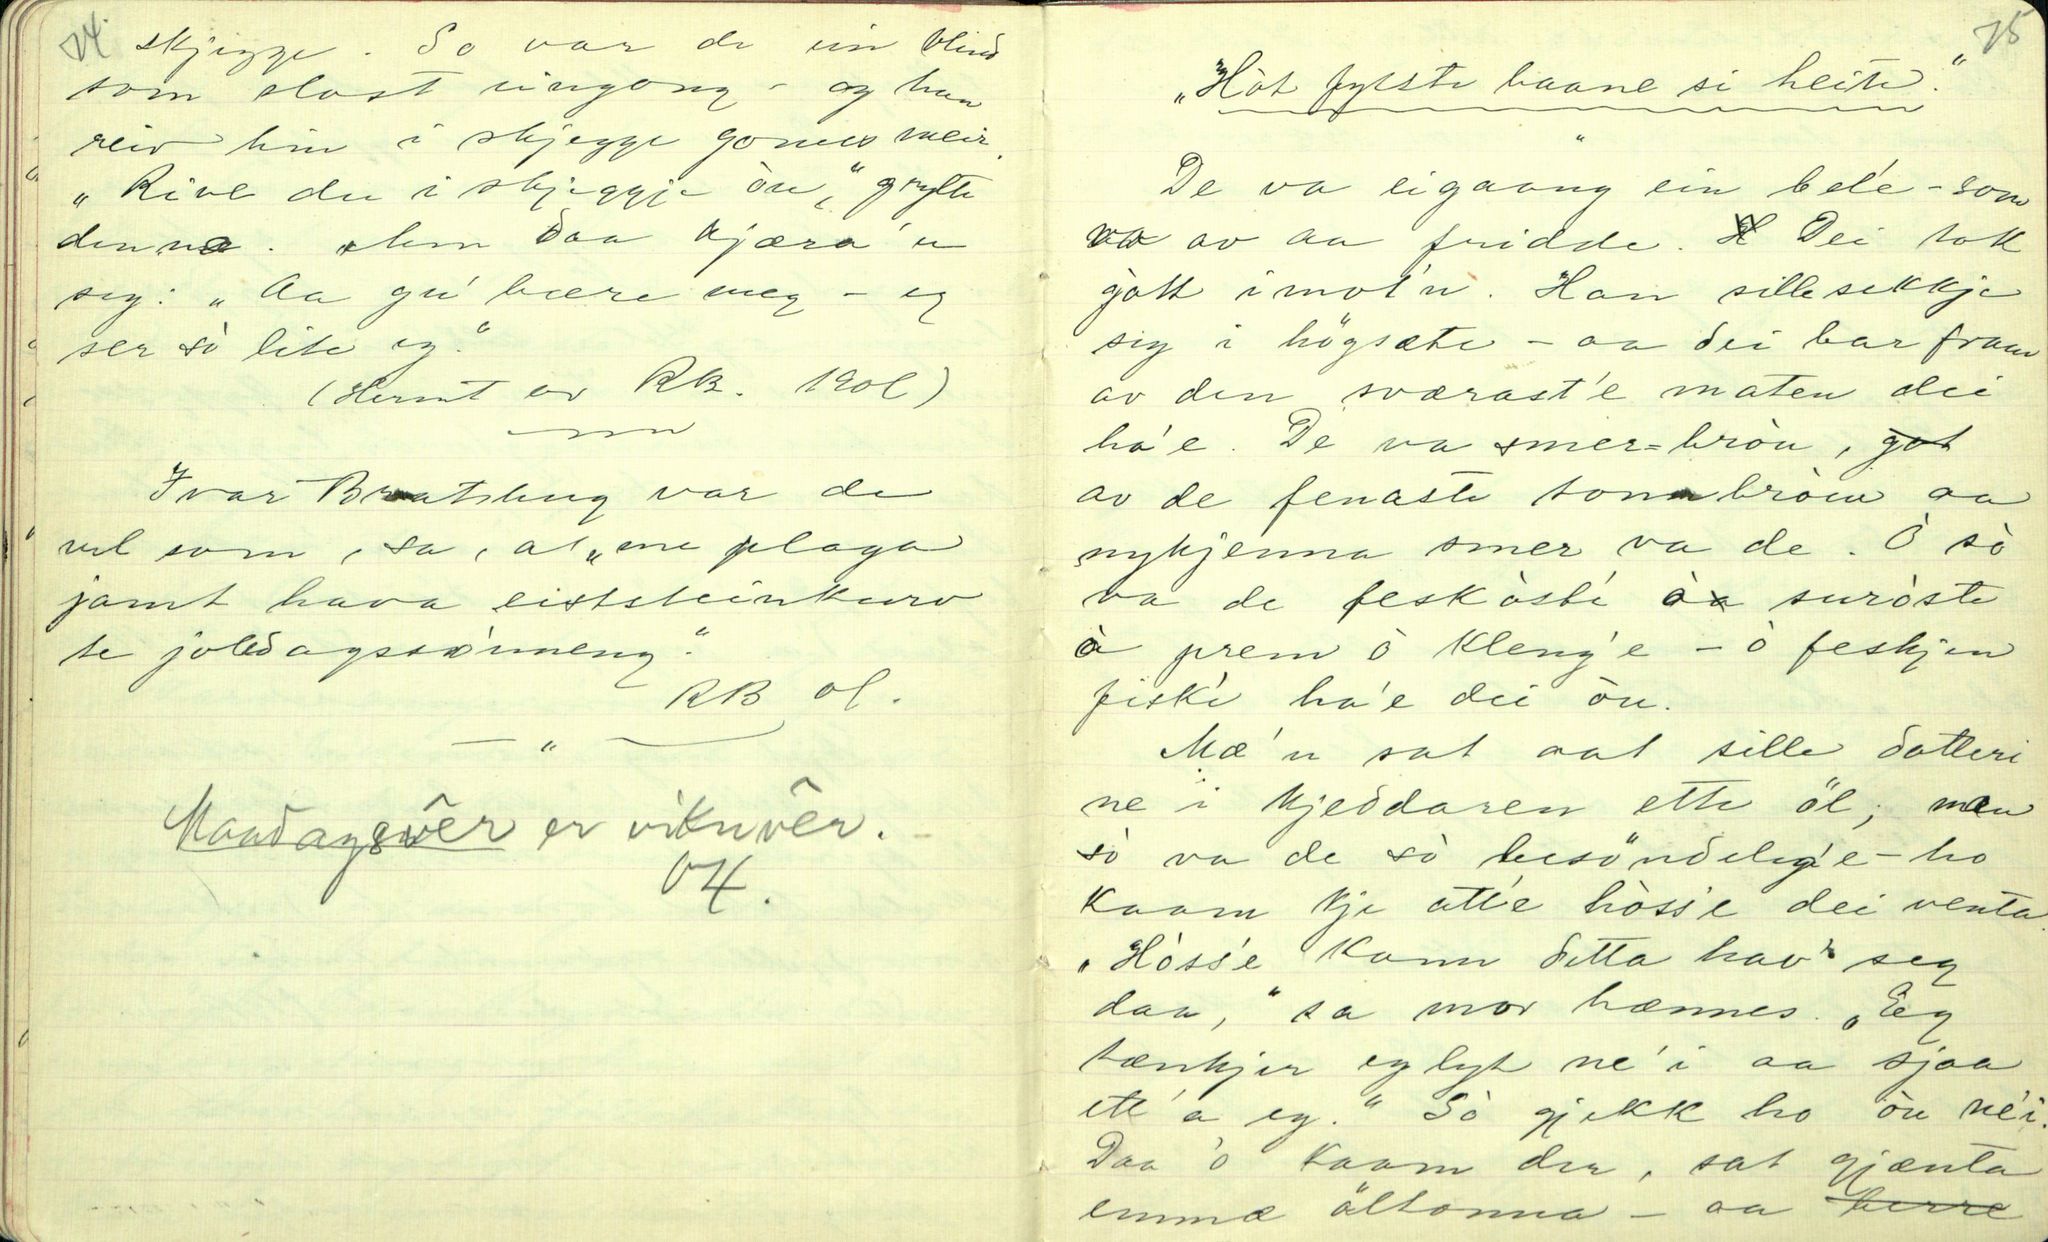 74.
skjegge. So var de ein blind
som slost eingong - og han
reiv hin i skjegge gonur meir.
"Rive du i skjeggje òu," grylte
denna. Men daa kjæra 'n
seg: "Aa gu' bære meg - eg
ser sò lite eg."
(Hermt av RB. 1901)
Ivar Bratsberg var de
vel som, sa, at "me plaga
jamt hava eiststeinkurv
te joledagssòumeng."
RB 01.
Maadagsvêr er vikuvêr.
04.
75
"Hòt fysste baane si heite."
De va eigaang ein bele - som
va av aa fridde. Dei tok
gòtt imot'n. Han sille sekkje
sig i högsæte - aa dei bar fram
av den sværast'e maten dei
ha'e. De va smer=bròu, got
av de fenaste tonnbròiu aa
nykjenna smer va de. Ò sò
va de feskòst'e òa suròste
ò prem ò kleng'e - ò feskjen
fisk'e ha'e dei òu.
Mæ'n sat aat sille dotteri
ne i kjeddaren ette öl; men
sò va de sò besöndeleg'e - ho
kaam kje att'e hòss'e dei venta.
"Hòss'e kann detta hav' seg
daa," sa mor hænnes. "Eg
tænkjer eg lyt ne'i aa sjaa
ett'a eg." Sò gjekk ho òu ne'i.
Daa 'o kaam der, sat gjænta
emmæ öltonna - aa berre